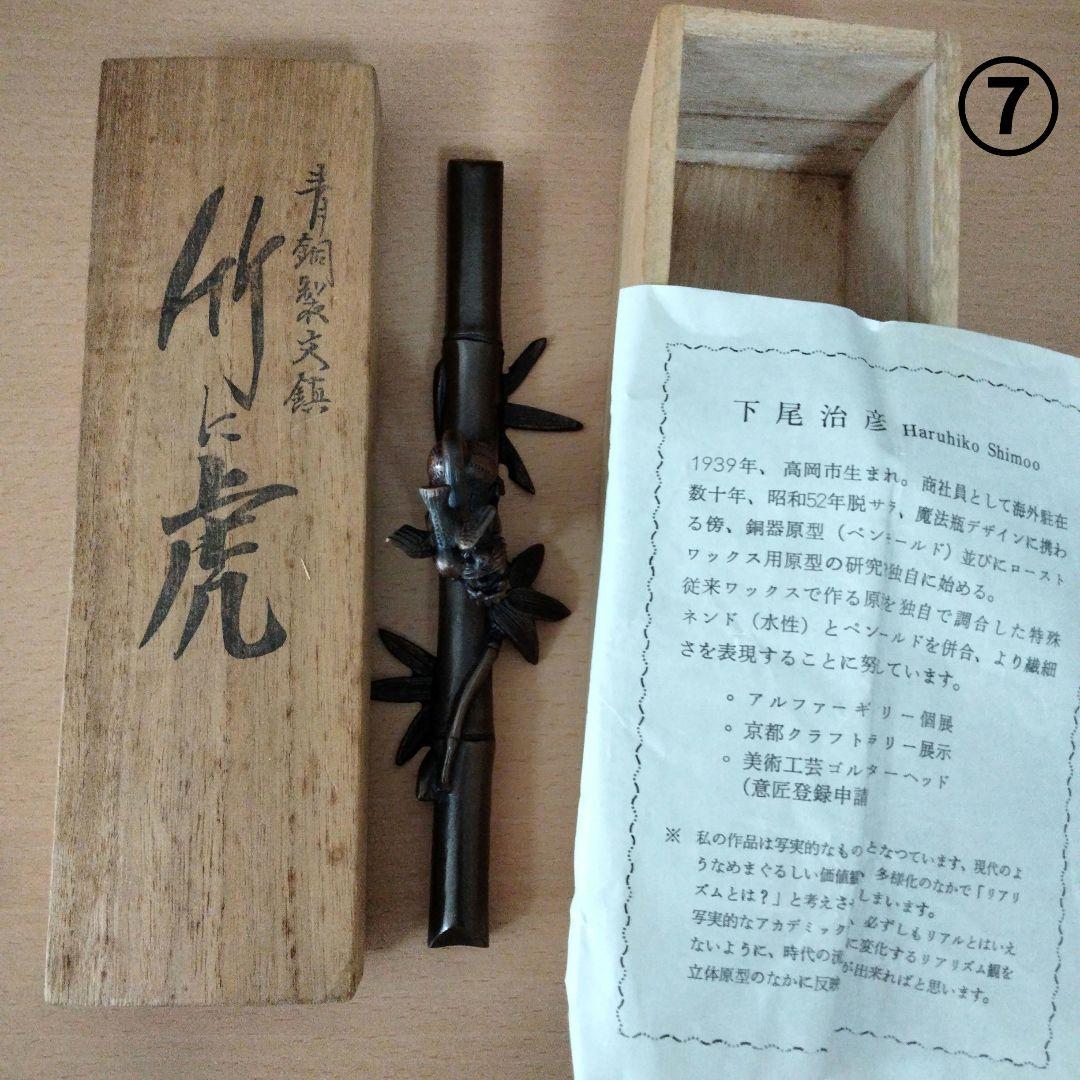 ⑦
青銅製文鎮
竹に虎
下尾治彦 Haruhiko Shimoo
1939年、高岡市生まれ。商社員として海外駐在
数十年、昭和52年脱サラ、魔法瓶デザインに携わ
る傍、銅器原型（ペンールド）並びにロースト
ワックス用原型の研究独自に始める。
従来ワックスで作る原を独自で調合した特殊
ネンド（水性）とペンールドを併合、より繊細
さを表現することに努しています。
○ アルファーギリー個展
○ 京都クラフトラリー展示
○ 美術工芸ゴルターヘッド
（意匠登録申請
※ 私の作品は写実的なものとなつています、現代のよ
うなめまぐるしい価値 多様化のなかで「リアリ
ズムとは？」と考えさしまいます。
写実的なアカデミック、必ずしもリアルとはいえ
ないように、時代の に変化するリアリズム観を
立体原型のなかに反 が出来ればと思います。